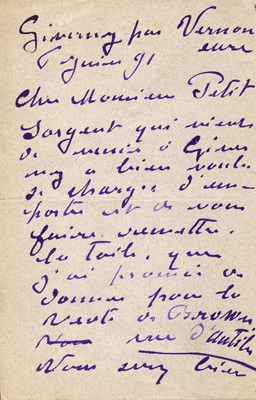 Giverny par Vernon
eure
juin 91
Cher Monsieur Petit
Sargent qui vient
de venir à Giver
ny a bien voulu
se charger d'em
porter et de vous
faire remettre
la toile, que
j'ai promis de
donner pour la
vente de Brown
vue d'antibes
Vous serez bien